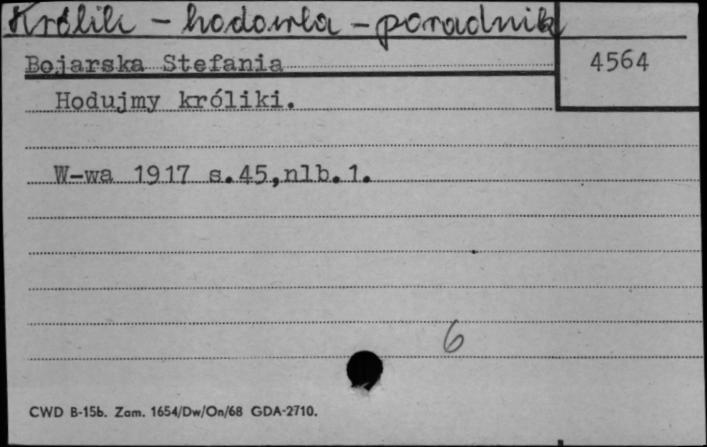 Królik - hodowla - poradnik
Bojarska Stefania
4564
Hodujmy króliki.
W-wa 1917 s.45,nlb.1.
6
CWD B-15b. Zam. 1654/Dw/On/68 GDA-2710.